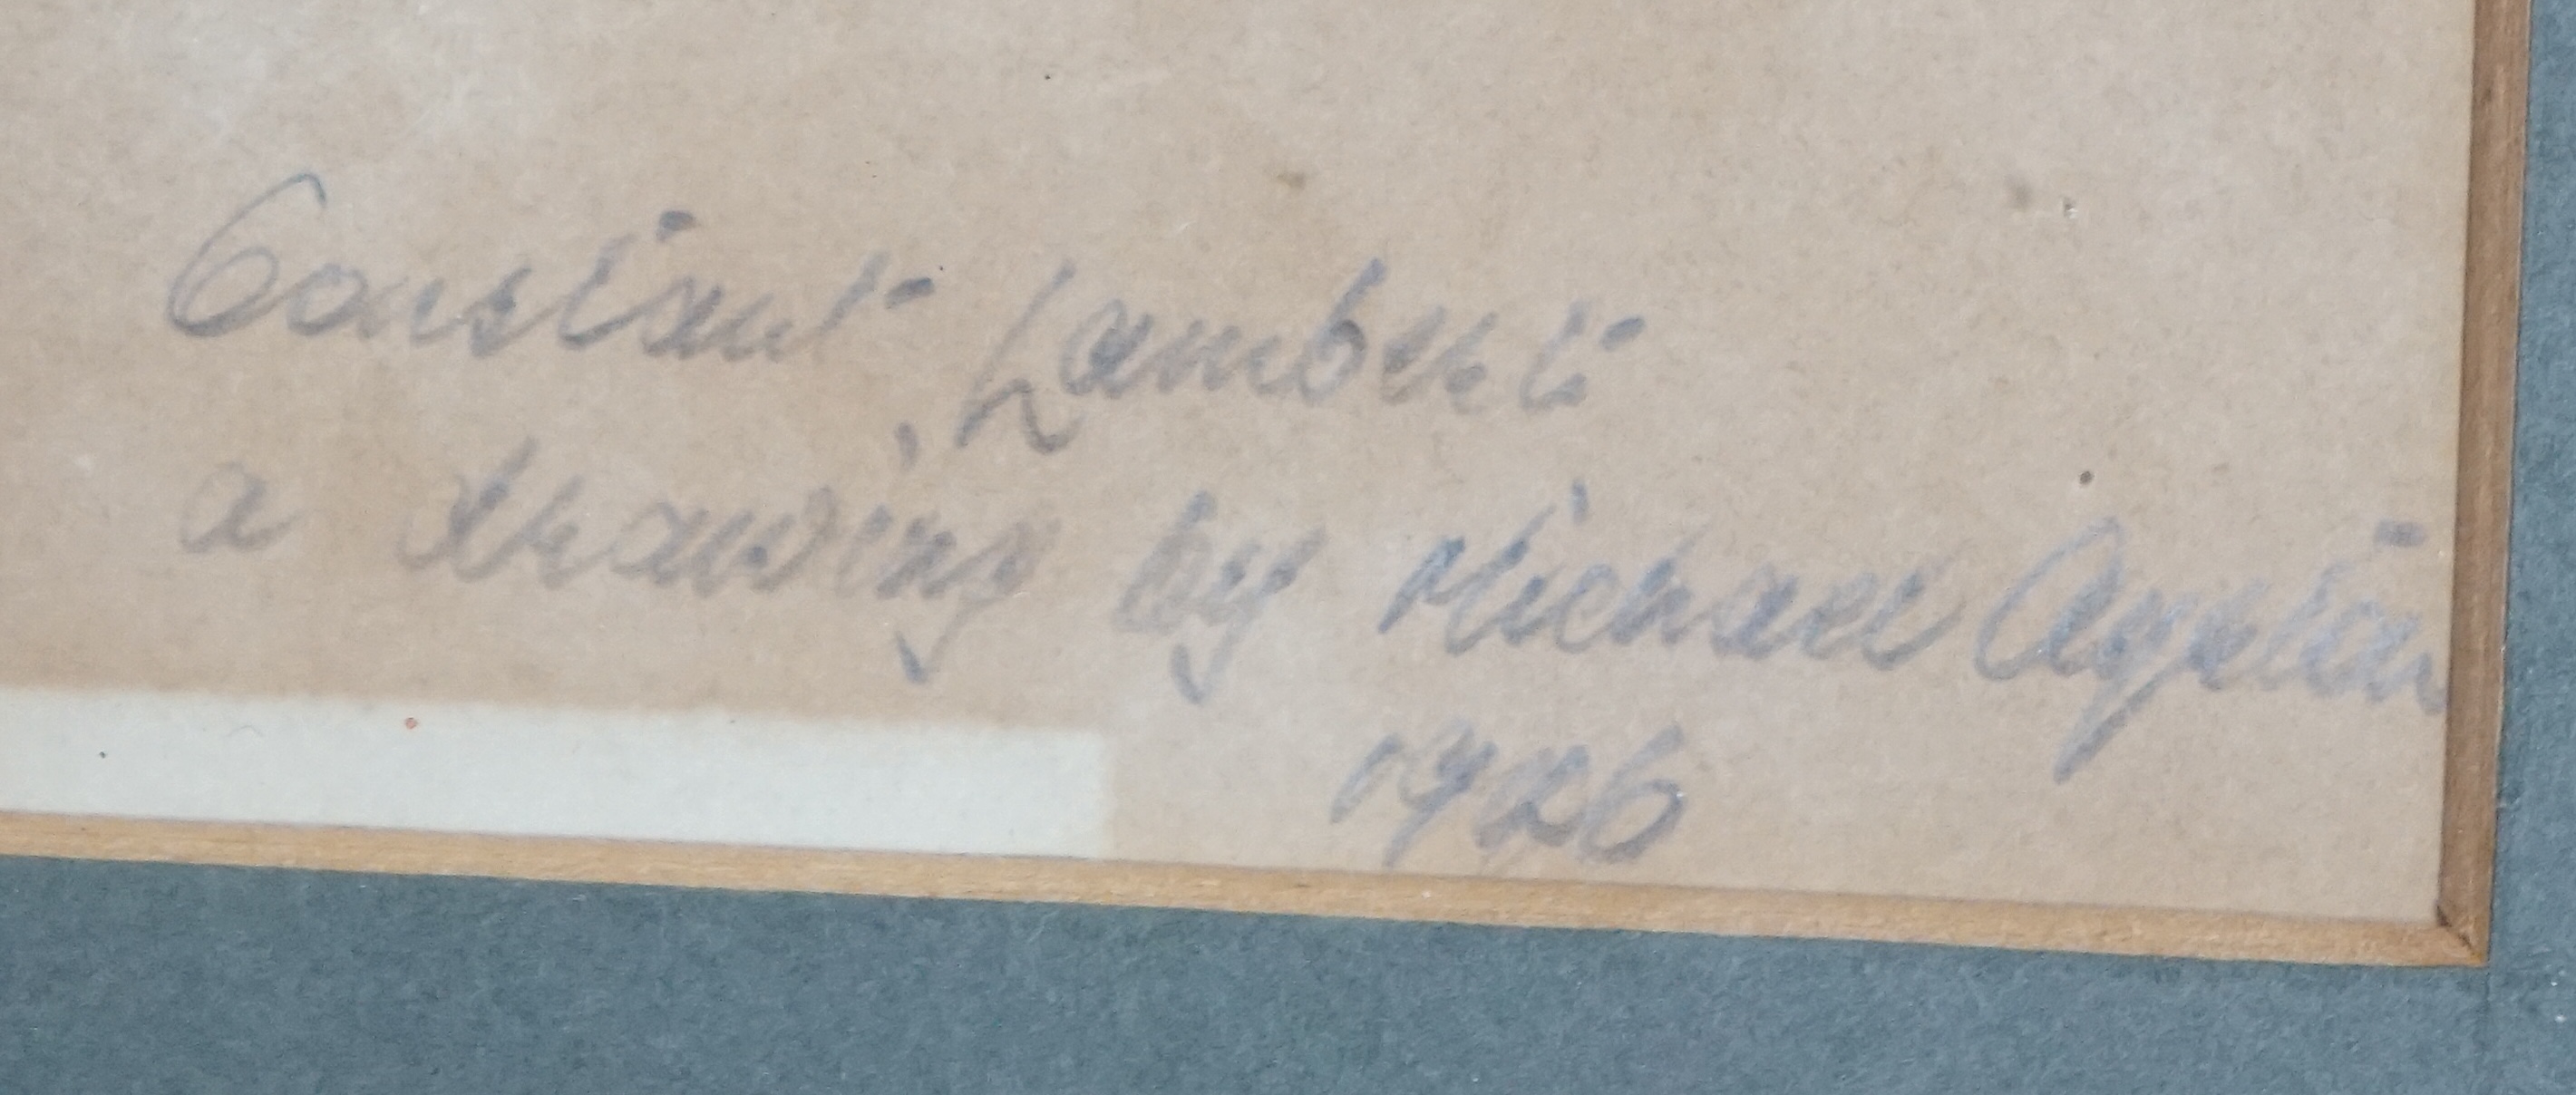 Constant Lambert
a drawing by Michael Ayrton
1926